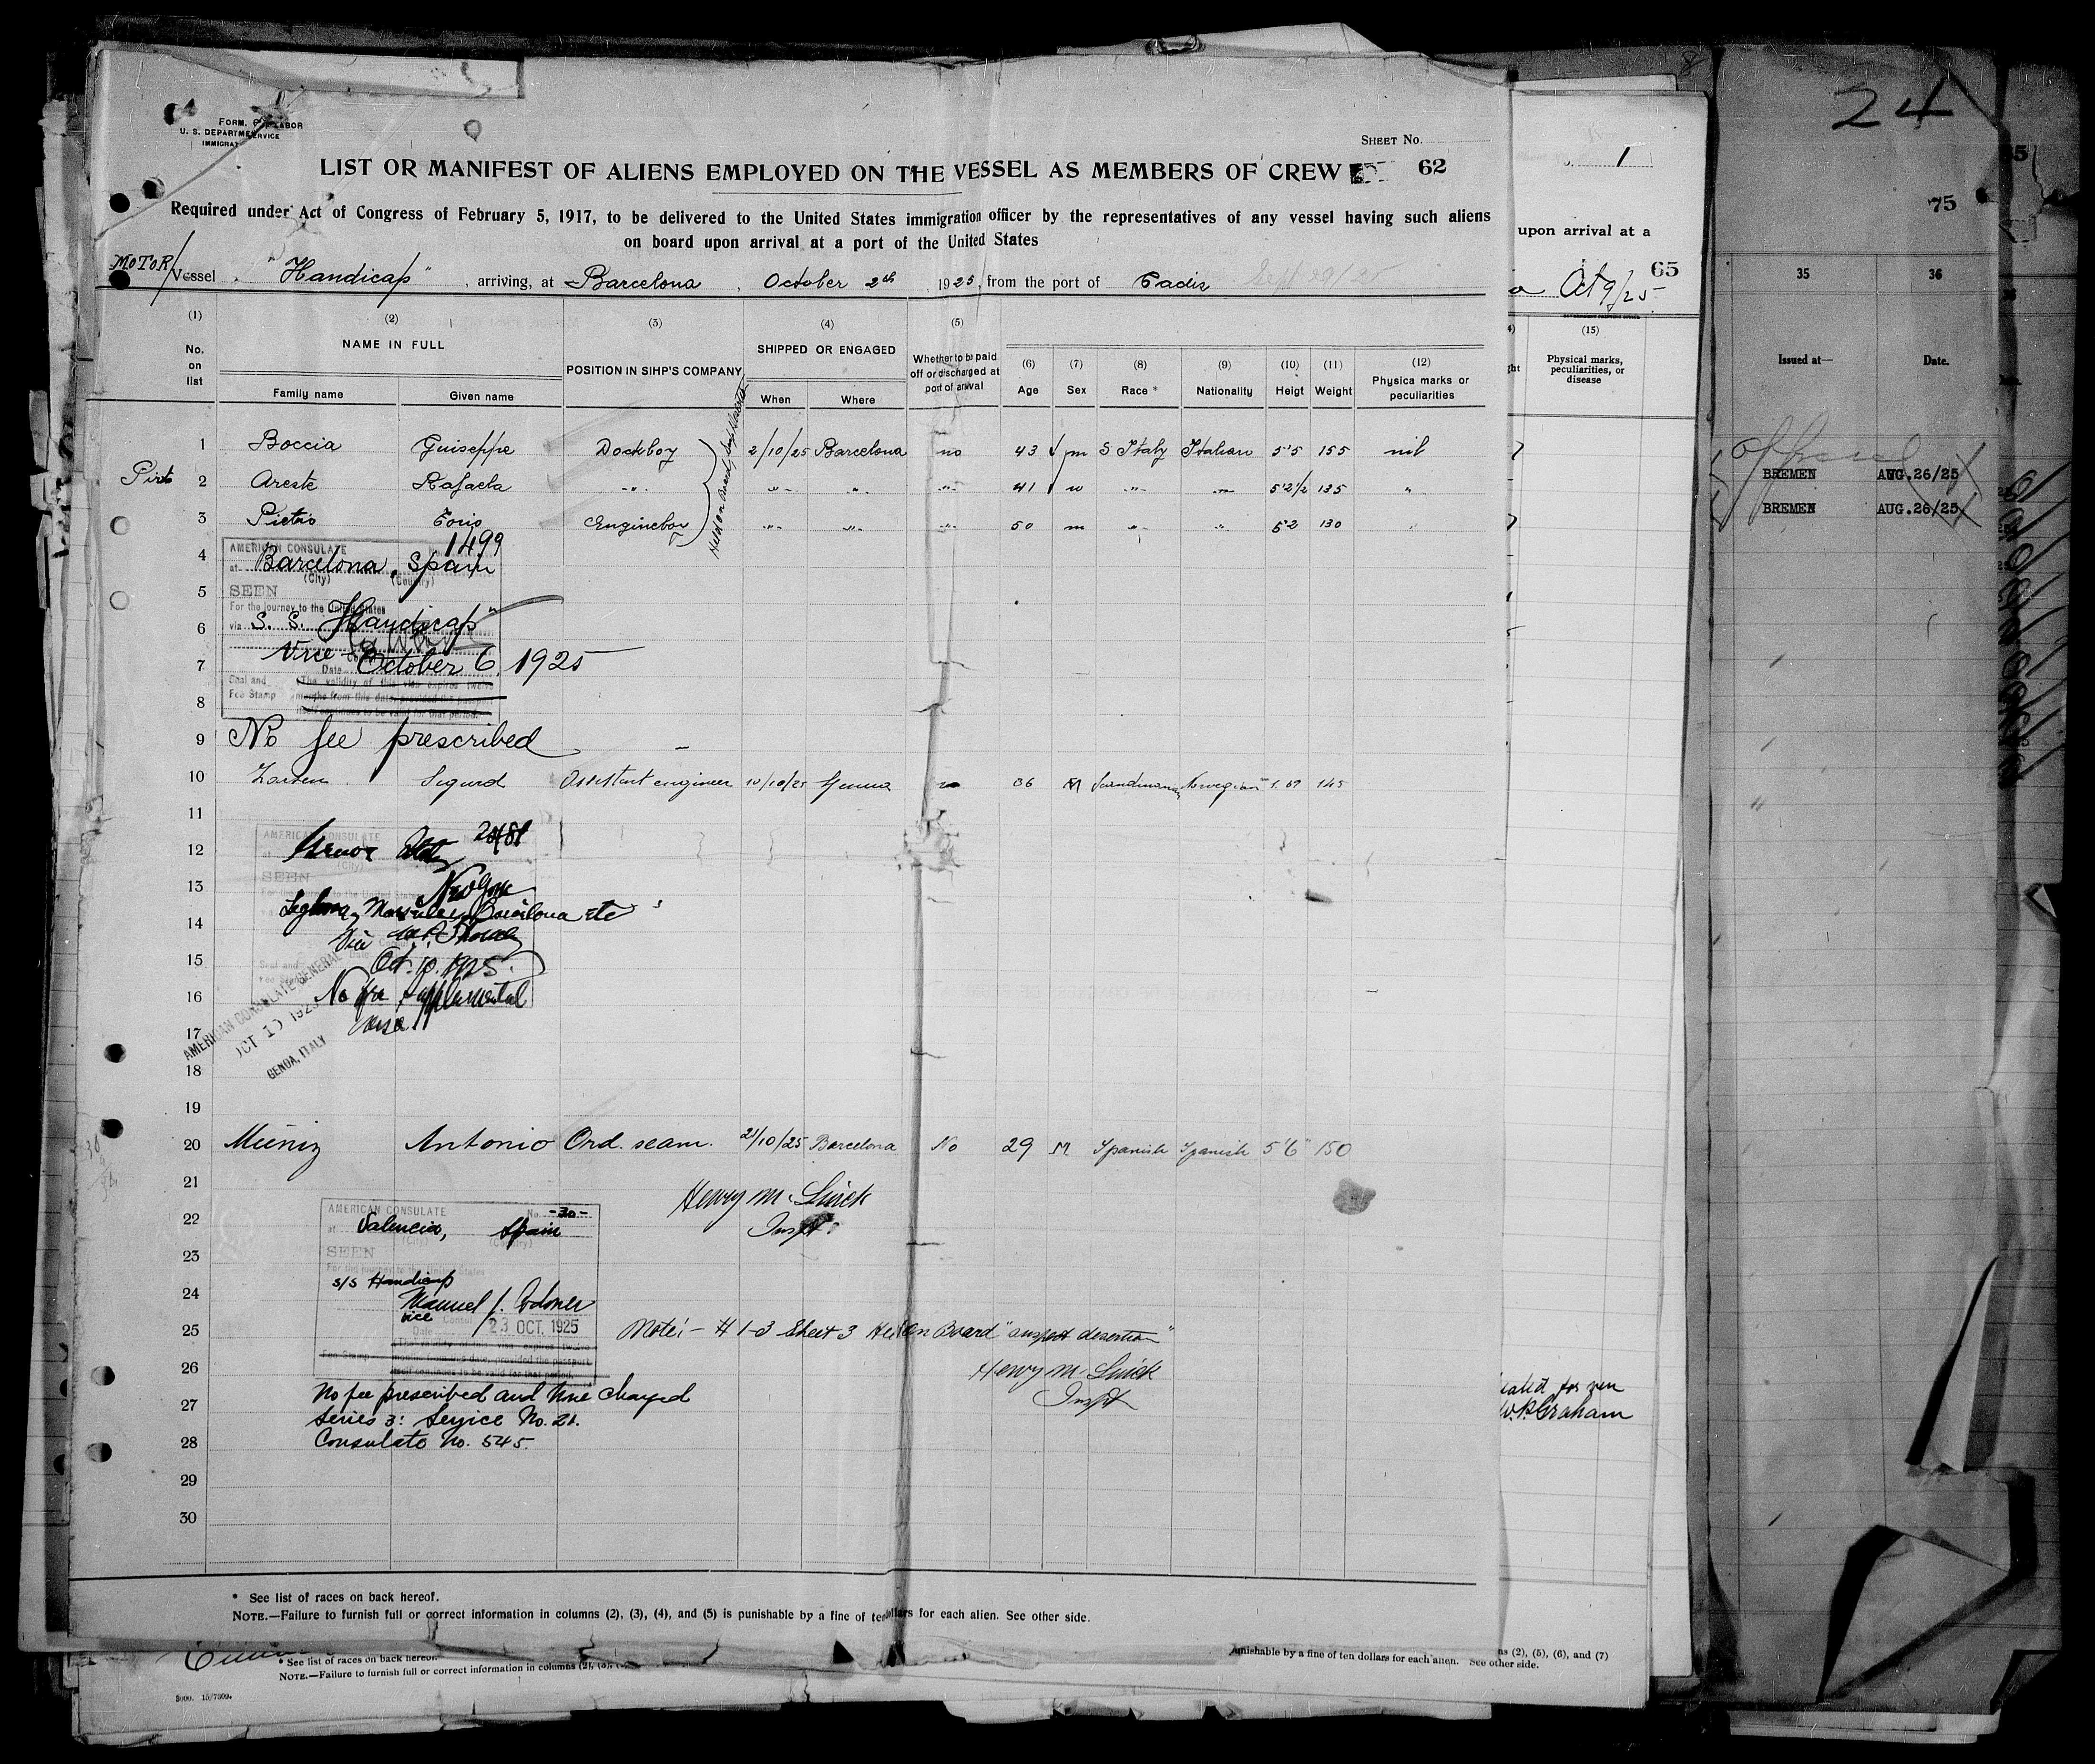 FORM.
U. S. DEPARTMENT LABOR
IMMIGRAT SERVICE
SHEET No.
LIST OR MANIFEST OF ALIENS EMPLOYED ON THE VESSEL AS MEMBERS OF CREW 62
Required under Act of Congress of February 5, 1917, to be delivered to the United States immigration officer by the representatives of any vessel having such aliens
on board upon arrival at a port of the United States
MOTOR/Vessel "Handicap", arriving, at Barcelona, October 2th 1925, from the port of Cadiz Sept 29/25
(1) (2) (3) (4) (5)
No. on list
NAME IN FULL
POSITION IN SIHP'S COMPANY
SHIPPED OR ENGAGED
Whether to be paid off or discharged at port of arrival
(6) (7) (8) (9) (10) (11) (12)
Family name Given name When Where Age Sex Race * Nationality Heigt Weight Physica marks or peculiarities
1 Boccia Guiseppe Dockboy 2/10/25 Barcelona no 43 m S Italy Italian 5'5 155 nil
2 Areste Rafaela -"- -"- -"- -"- 41 -"- -"- 5'2 1/2 135 "
3 Pietrio Enginebor -"- -"- -"- 50 m -"- -"- 5'2 130 "
4
AMERICAN CONSULATE 1499
at Barcelona, Spain
(City) (Country)
5
SEEN
For the journey to the United States
6
via S. S. Handicap"
7
Vice
Date October 6, 1925
Seal and Fee Stamp
The validity of this visa expires twelve
months from this date, provided the passport
itself continues to be valid for that period.
8
9 No fee prescribed
10 Larsen Sigurd Assistant engineer 10/10/25 Genua no 36 M Scandinavian Norwegian 1.67 145
11
AMERICAN CONSULATE
12
SEEN
13 New York
14 Marseilles Barcelona etc
15 Oct. 10. 1925.
16 No fee supplemental
17 visa
AMERICAN CONSULATE GENERAL
OCT 10 1925
GENOA, ITALY
18
19
20 Muniz Antonio Ord. seam. 21/10/25 Barcelona No 29 M Spanish Spanish 5'6" 150
21 Henry M.
22 Inspt.
AMERICAN CONSULATE No. -30-
at Valencia, Spain
(City) (Country)
23
SEEN
For the journey to the United States
24
s/s Handicap
Manuel J. Codoner
vice Consul
25
Date 23 OCT. 1925
Note:- # 1-3 Sheet 3 Held on Board "suspect desertion"
The validity of this visa expires twelve
Fee Stamp months from this date, provided the passport
26
itself continues to be valid for that period.
Henry M.
Inspt
No fee prescribed and None Charged
27
Series 3: Service No. 21.
28
Consulate No. 545.
29
30
* See list of races on back hereof.
NOTE.—Failure to furnish full or correct information in columns (2), (3), (4), and (5) is punishable by a fine of ten dollars for each alien. See other side.
* See list of races on back hereof.
NOTE.—Failure to furnish full or correct information in columns (2), (3),
punishable by a fine of ten dollars for each alien. See other side.
ns (2), (5), (6), and (7)
1
upon arrival at a
65
Oct 9/25
(15)
Physical marks, peculiarities, or disease
W.P. Graham
24
75
35 36
Issued at— Date.
BREMEN AUG.26/25
BREMEN AUG.26/25